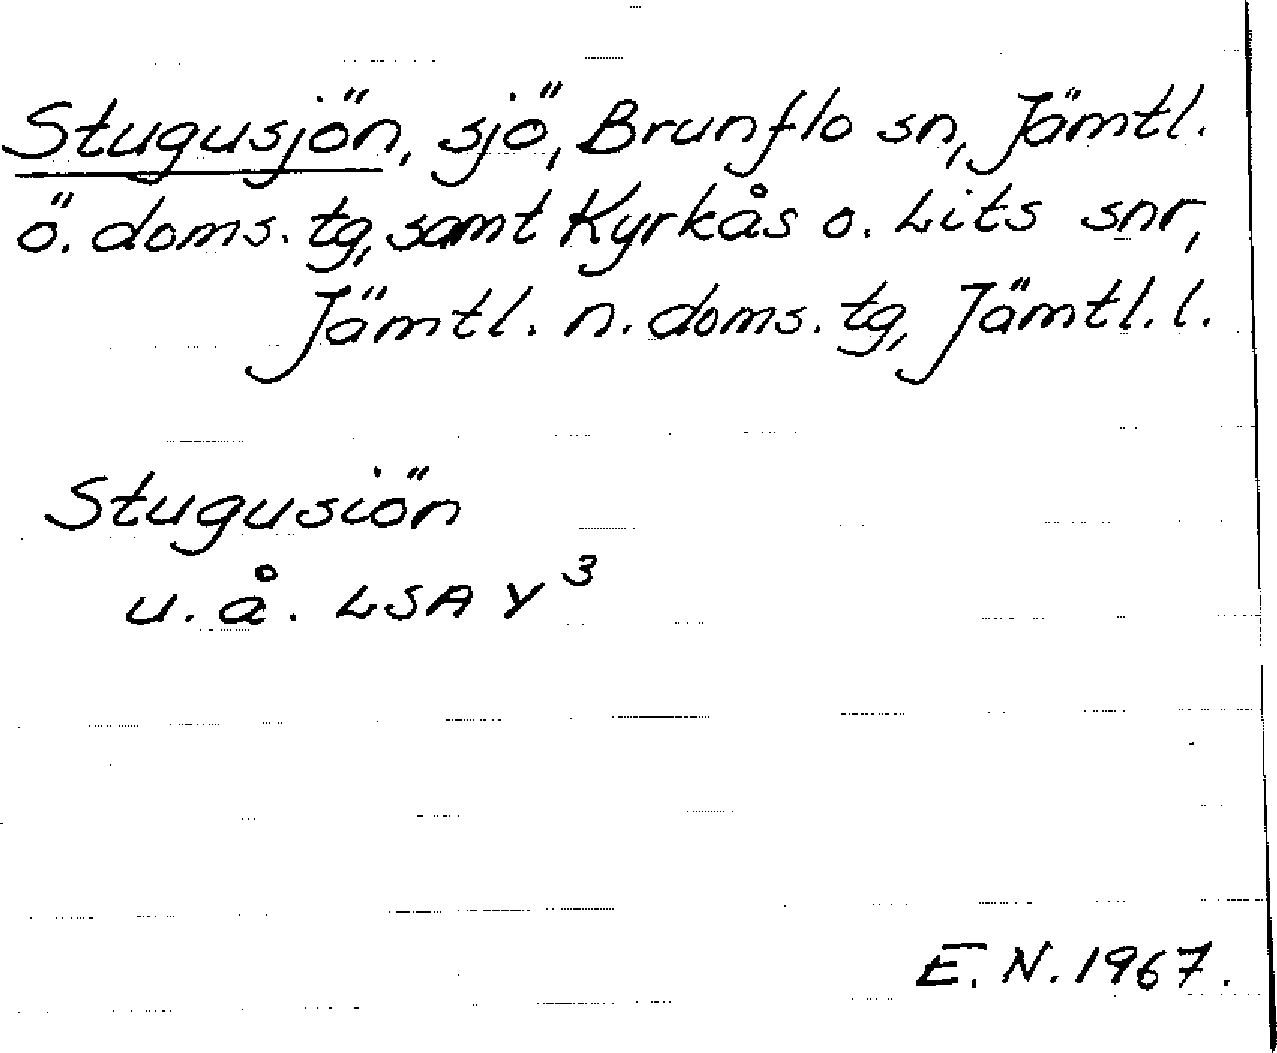 Stugusjön, sjö, Brunflo sn, Jämtl.
ö. doms. tg, samt Kyrkås o. Lits snr,
Jämtl. n. doms. tg, Jämtl. l.
Stugusiön
u. å. LSA Y³
E. N. 1967.